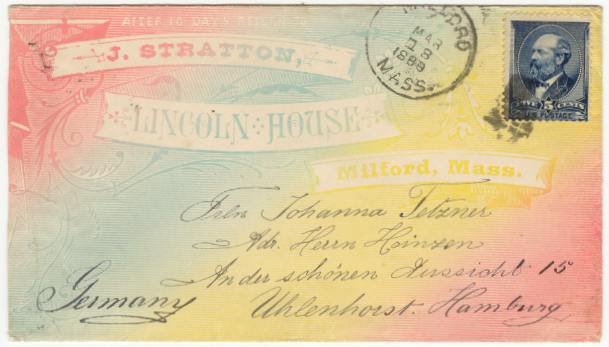 AFTER 10 DAYS RETURN TO
J. STRATTON,
LINCOLN HOUSE
Milford, Mass.
MILFORD
MAR
1888
MASS.
5 CENTS
U.S. POSTAGE
Frln Johanna Tetzner
Adr. Herrn Heinzen
An der schönen Aussicht 15
Uhlenhorst. Hamburg
Germany